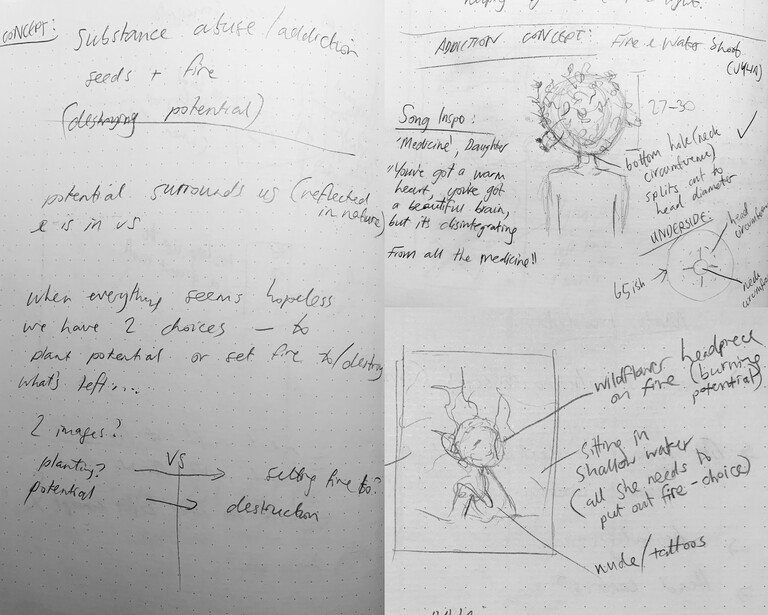 CONCEPT: Substance abuse/addiction
seeds + fire
(destroying potential)
potential surrounds us (reflected
in nature)
& is in us
when everything seems hopeless
we have 2 choices – to
plant potential or set fire to/destroy
what's left....
2 images?
planting? VS setting fire to?
potential destruction
ADDICTION CONCEPT: Fire & Water Shoot
(JULIA)
27-30
Song Inspo:
'Medicine', Daughter
"You've got a warm
heart, you've got
a beautiful brain,
but its disintegrating
From all the medicine"
bottom hole (neck
circumference)
splits out to
head diameter
UNDERSIDE:
head
65ish
neck
wildflower headpiece
on fire (burning
potential)
sitting in
shallow water
(all she needs to
put out fire - choice)
nude/tattoos